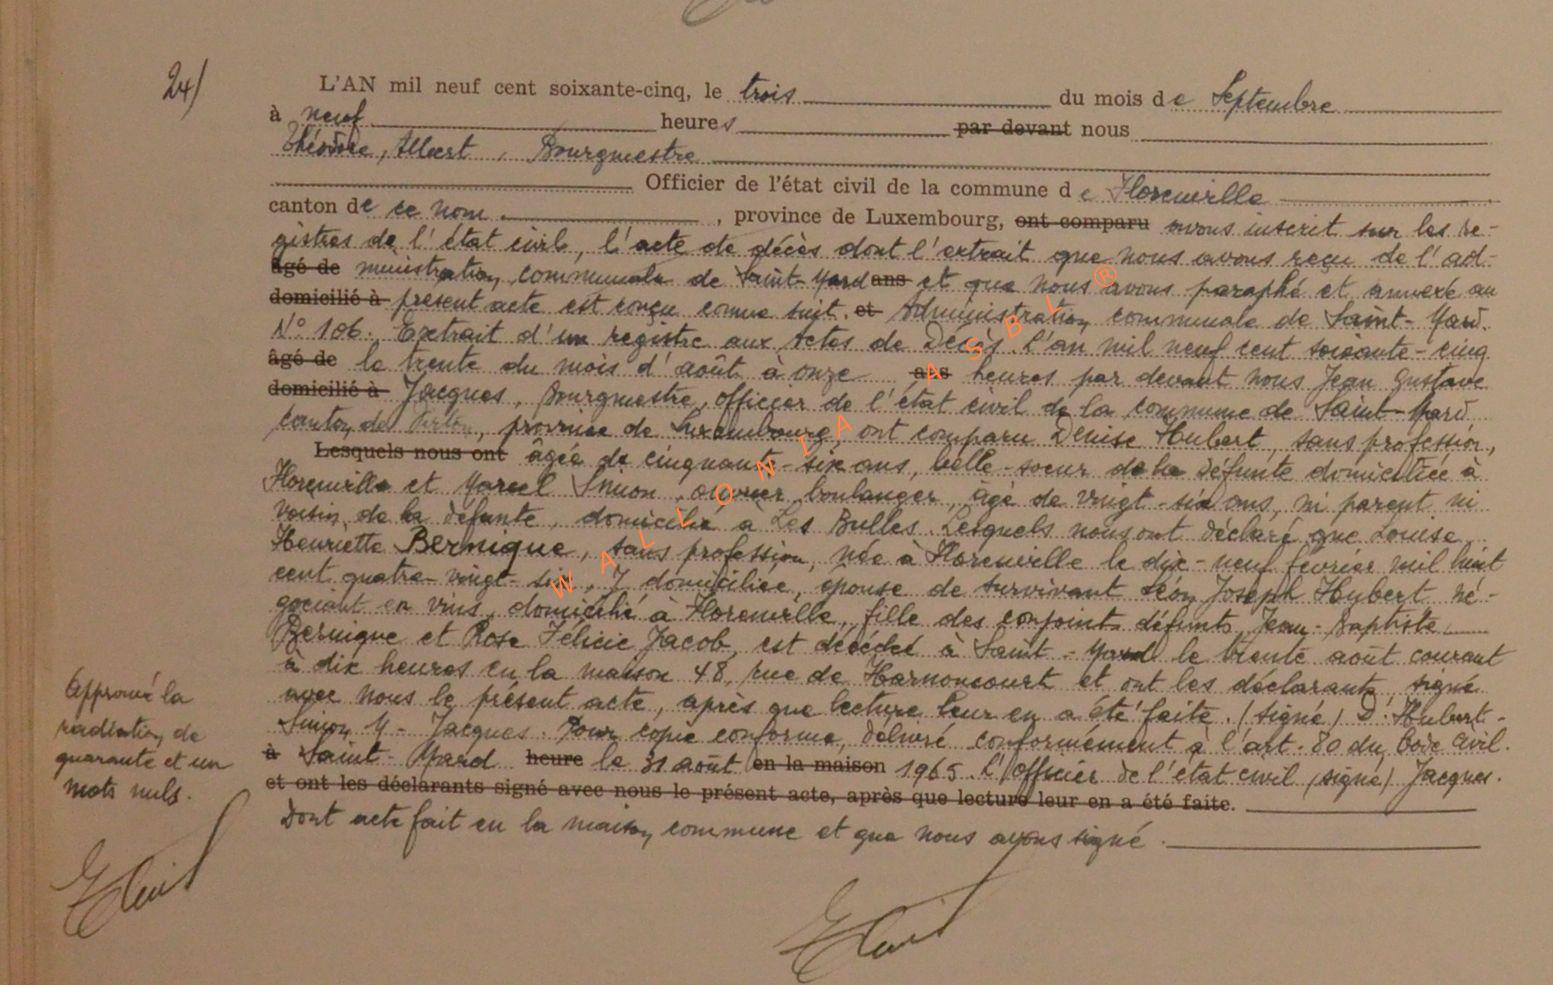 24/
L'AN mil neuf cent soixante-cinq, le trois du mois de Septembre
à neuf heures par devant nous
Théodore, Albert, Bourgmestre
Officier de l'état civil de la commune de Florenville
canton de ce nom, province de Luxembourg, ont comparu avons inscrit sur les re-
gistres de l'état civil, l'acte de décès dont l'extrait que nous avons reçu de l'ad-
âgé de ministration communale de Saint-Mard ans et que nous avons paraphé et annexé au
domicilié à présent acte est conçu comme suit. et Administration communale de Saint-Mard.
N° 106. Extrait d'un registre aux actes de Décès. L'an mil neuf cent soixante-cinq
âgé de le trente du mois d'août à onze ans heures par devant nous Jean Gustave
domicilié à Jacques, Bourgmestre, officier de l'état civil de la commune de Saint-Mard
canton de Virton, province de Luxembourg, ont comparu Denise Hubert, sans profession,
Lesquels nous ont âgée de cinquante-six ans, belle-soeur de la défunte domiciliée à
Florenville et Marcel Simon, ouvrier boulanger, âgé de vingt-six ans, ni parent ni
voisin de la défunte, domicilié à Les Bulles. Lesquels nous ont déclaré que Louise
Henriette Bernique, sans profession, née à Florenville le dix-neuf février mil huit
cent quatre-vingt-six, y domiciliée, épouse de survivant Léon Joseph Hubert né-
gociant en vins, domicilié à Florenville, fille des conjoints défunts Jean-Baptiste
Bernique et Rose Félicie Jacob, est décédée à Saint-Mard le trente août courant
à dix heures en la maison 48, rue de Harnoncourt et ont les déclarants signé
avec nous le présent acte, après que lecture leur en a été faite. (signé) D. Hubert-
Simon M - Jacques. Pour copie conforme, délivré conformément à l'art. 80 du Code Civil.
à Saint-Mard heure le 31 août en la maison 1965. L'officier de l'état civil (signé) Jacques.
et ont les déclarants signé avec nous le présent acte, après que lecture leur en a été faite.
Dont acte fait en la maison commune et que nous avons signé.
Approuvé la
radiation de
quarante et un
mots nuls.
WALLONIA ASBL ®